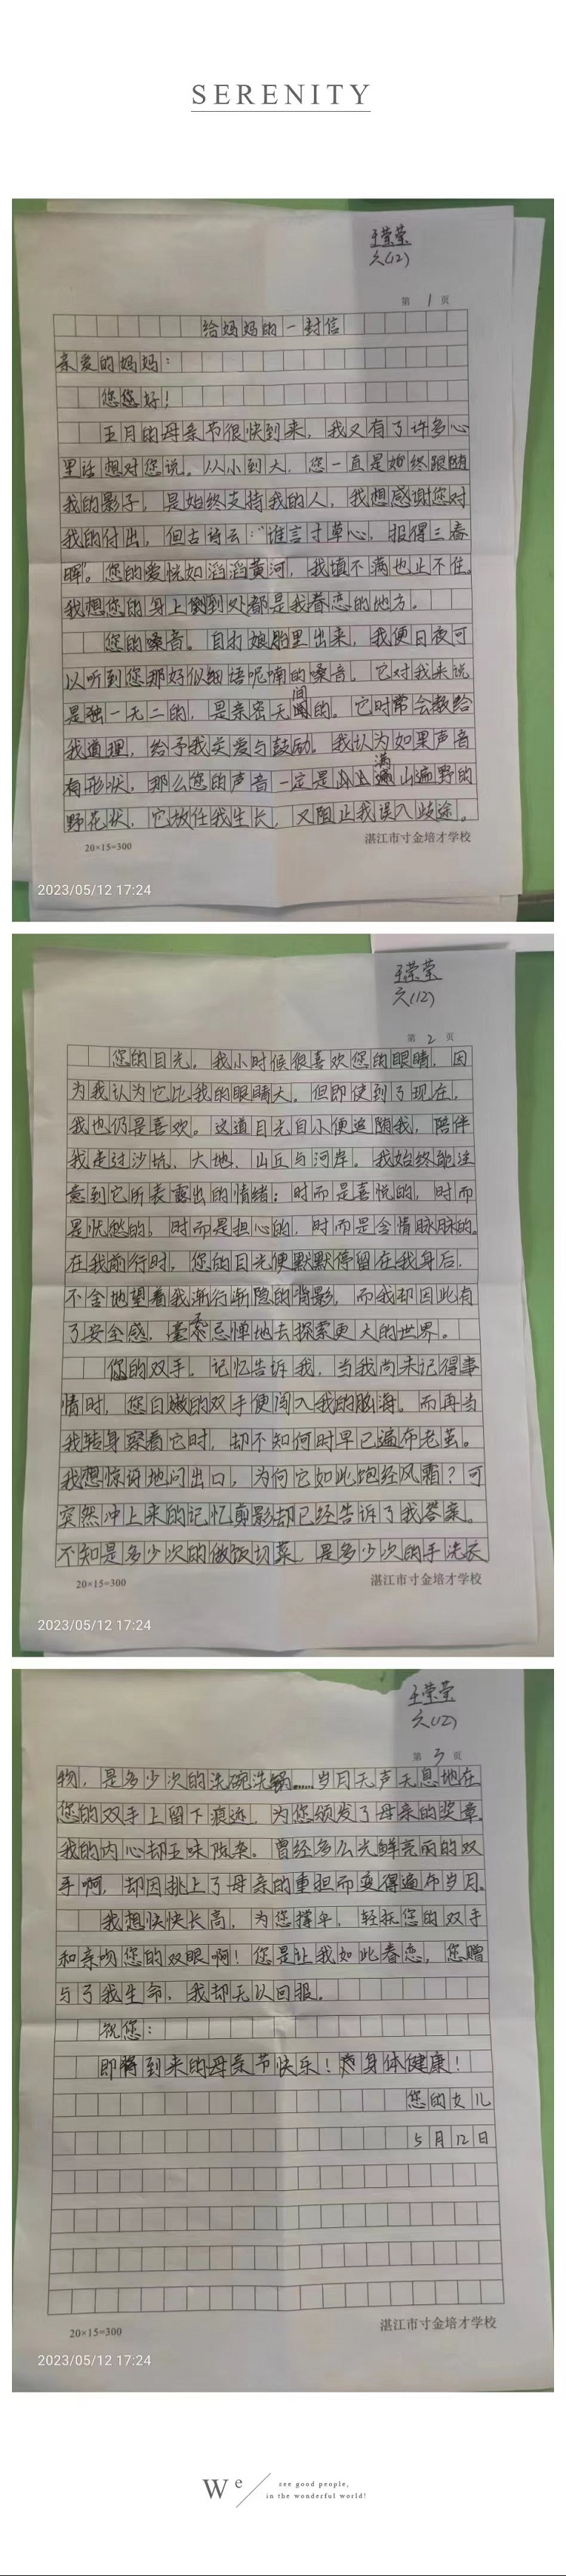 SERENITY
王荣荣
六(12)
第 1 页
给妈妈的一封信
亲爱的妈妈：
您您好！
五月的母亲节很快到来，我又有了许多心
里话想对您说。从小到大，您一直是始终跟随
我的影子，是始终支持我的人，我想感谢您对
我的付出，但古诗云：“谁言寸草心，报得三春
晖”。您的爱恍如滔滔黄河，我填不满也止不住。
我想您的身上到处都是我眷恋的地方。
您的嗓音。自打娘胎里出来，我便日夜可
以听到您那好似细语呢喃的嗓音。它对我来说
是独一无二的，是亲密无间的。它时常会教给
我道理，给予我关爱与鼓励。我认为如果声音
有形状，那么您的声音一定是满山遍野的
野花状，它放任我生长，又阻止我误入歧途。
20×15=300
湛江市寸金培才学校
2023/05/12 17:24
王荣荣
六(12)
第 2 页
您的目光。我小时候很喜欢您的眼睛，因
为我认为它比我的眼睛大。但即使到了现在，
我也仍是喜欢。这道目光自小便追随我，陪伴
我走过沙坑、大地、山丘与河岸。我始终能注
意到它所表露出的情绪：时而是喜悦的，时而
是忧愁的，时而是担心的，时而是含情脉脉的。
在我前行时，您的目光便默默停留在我身后，
不舍地望着我渐行渐隐的背影，而我却因此有
了安全感，毫不忌惮地去探索更大的世界。
您的双手。记忆告诉我，当我尚未记得事
情时，您白嫩的双手便闯入我的脑海。而再当
我转身察看它时，却不知何时早已遍布老茧。
我想惊讶地问出口，为何它如此饱经风霜？可
突然冲上来的记忆剪影却已经告诉了我答案。
不知是多少次的做饭切菜，是多少次的手洗衣
20×15=300
湛江市寸金培才学校
2023/05/12 17:24
王荣荣
六(12)
第 3 页
物，是多少次的洗碗洗锅……岁月无声无息地在
您的双手上留下痕迹，为您颁发了母亲的奖章。
我的内心却五味陈杂。曾经多么光鲜亮丽的双
手啊，却因挑上了母亲的重担而变得遍布岁月。
我想快快长高，为您撑伞，轻抚您的双手
和亲吻您的双眼啊！您是让我如此眷恋，您赠
与了我生命，我却无以回报。
祝您：
即将到来的母亲节快乐！身体健康！
您的女儿
5月12日
20×15=300
湛江市寸金培才学校
2023/05/12 17:24
We
see good people,
in the wonderful world!